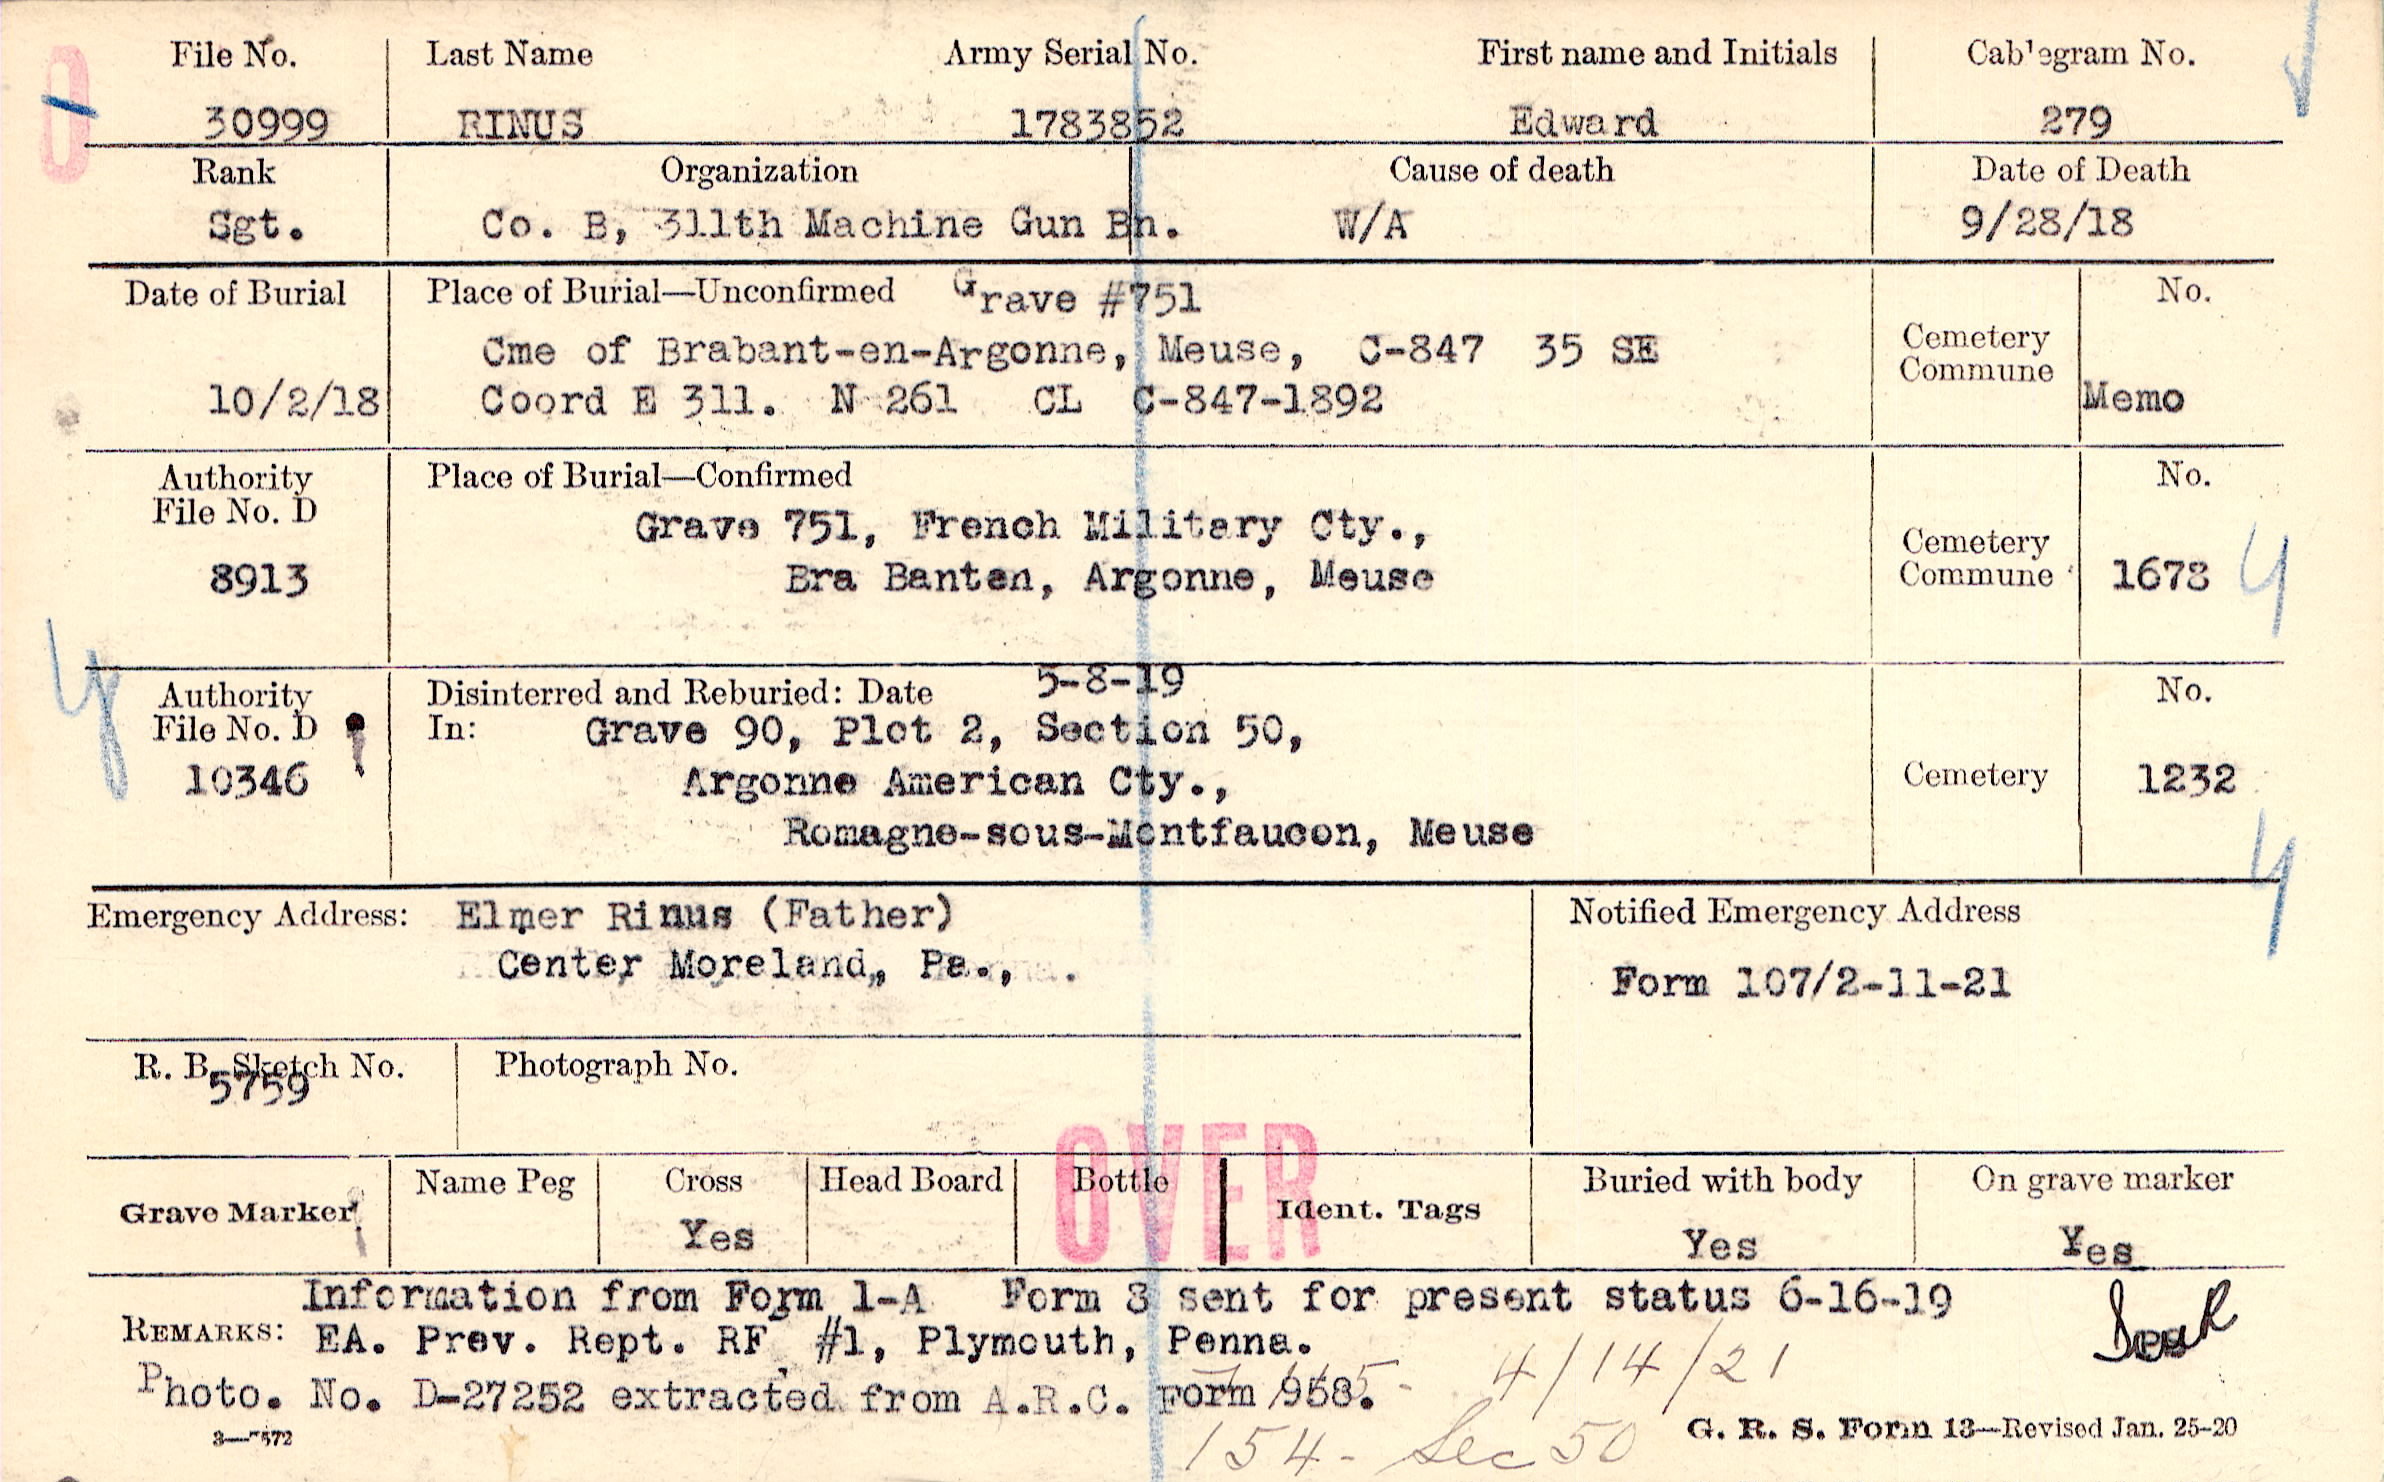 File No. Last Name Army Serial No. First name and Initials Cablegram No.
30999 RINUS 1783852 Edward 279
Rank Organization Cause of death Date of Death
Sgt. Co. B, 311th Machine Gun Bn. W/A 9/28/18
Date of Burial Place of Burial—Unconfirmed Grave #751 No.
Cme of Brabant-en-Argonne, Meuse, C-847 35 SE Cemetery
Commune
10/2/18 Coord E 311. N 261 CL C-847-1892 Memo
Authority Place of Burial—Confirmed No.
File No. D
Grave 751, French Military Cty., Cemetery
8913 Bra Banten, Argonne, Meuse Commune 1678
Authority Disinterred and Reburied: Date 5-8-19 No.
File No. D In: Grave 90, Plot 2, Section 50,
10346 Argonne American Cty., Cemetery 1232
Romagne-sous-Montfaucon, Meuse
Emergency Address: Elmer Rinus (Father) Notified Emergency Address
Center Moreland, Pa., Form 107/2-11-21
R. B. Sketch No. Photograph No.
5759
OVER
Grave Marker Name Peg Cross Head Board Bottle Ident. Tags Buried with body On grave marker
Yes Yes Yes
Information from Form 1-A Form 3 sent for present status 6-16-19
REMARKS: EA. Prev. Rept. RF #1, Plymouth, Penna.
4/14/21
Photo. No. D-27252 extracted from A.R.C. Form 958.
154 - Sec 50
G. R. S. Form 13—Revised Jan. 25-20